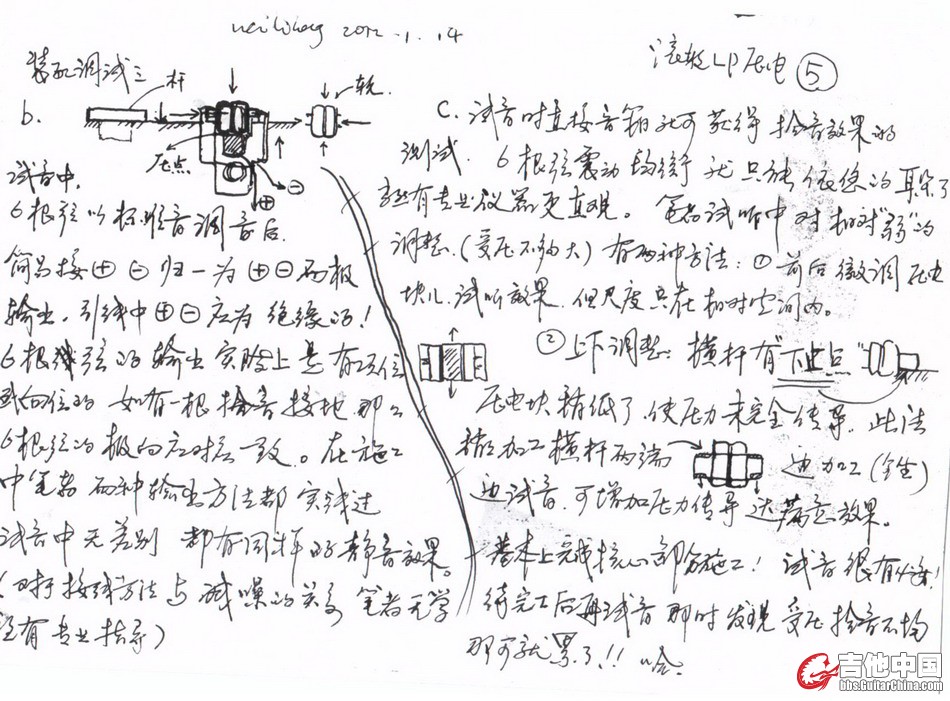 2012.1.14
LP压电 ⑤
装配调试三
b.
杆
轨
压点
⊖
⊕
试音中,
6根弦以标准音调音后,
简易接⊕⊖归一为⊕⊖两极
输出。引线中⊕⊖应为绝缘的!
6根弦的输出实际上是有
如有一根拾音接地那么
6根弦的极向应对应一致。在施工
中笔者两种输出方法都实践过
试音中无差别 都有同样的静音效果。
(对于接线方法与减噪的关系 笔者无学
没有专业指示)
C. 试音时直接音箱就可获得拾音效果的
测试. 6根弦震动均衡就只能依您的耳朵了
有专业仪器更直观。笔者试听中对相对"弱"的
调整.(受压不够大)有两种方法:①前后微调压电
块儿,试听效果,但尺度只在相对空间内。
②上下调整:横杆有"下止点"
压电块稍低了,使压力未完全传导,此法
加工横杆两端 边加工(锉)
边试音,可增加压力传导达满意效果。
基本上完成核心部分施工!试音很有必要!
待完工后再试音那时发现受压拾音不均
那可就累了!!哈.
吉他中国
bbs.GuitarChina.com